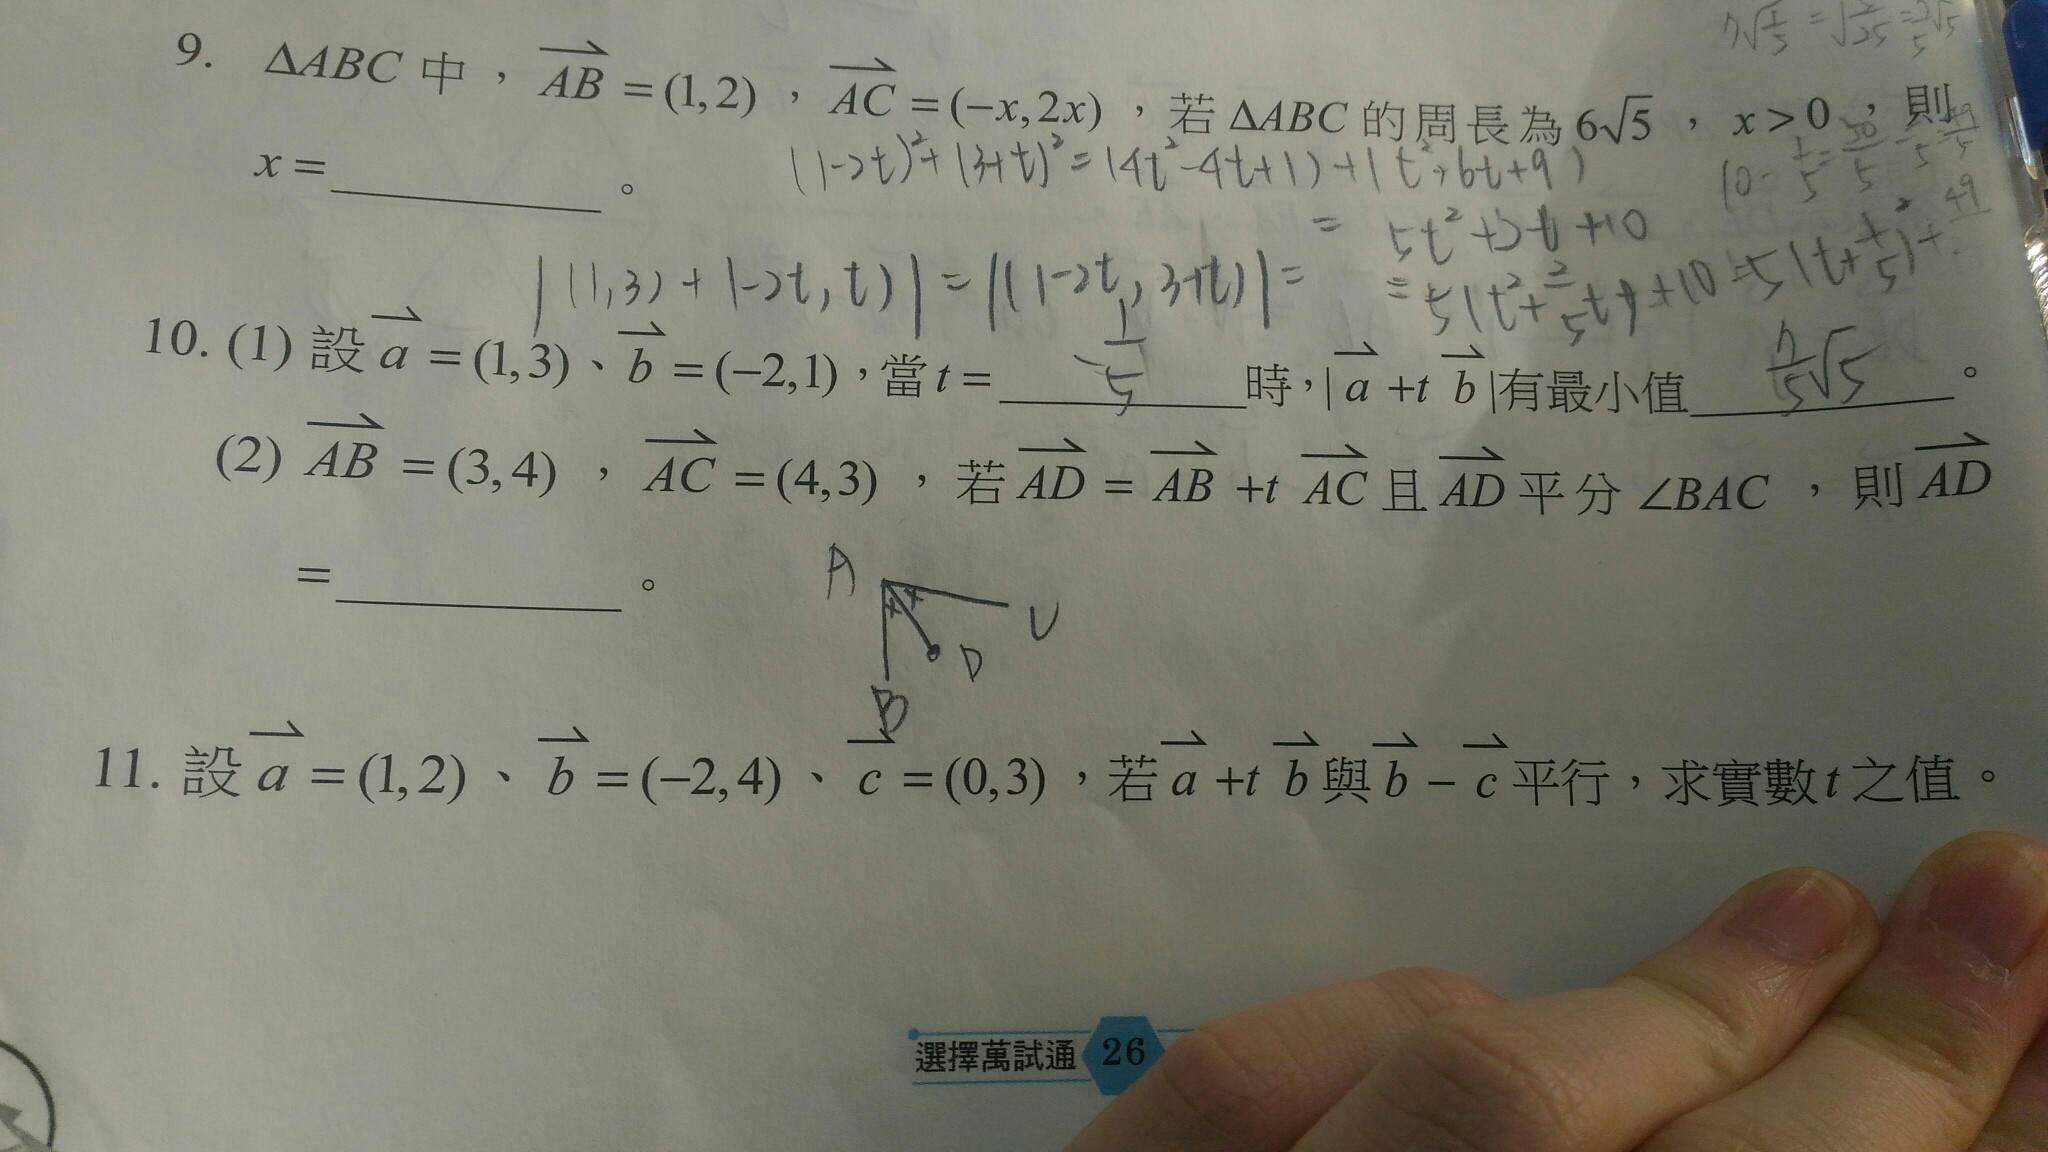 7√(1/5) = √
9. ΔABC 中，AB⃗ = (1, 2)，AC⃗ = (−x, 2x)，若 ΔABC 的周長為 6√5，x > 0，則
x = ________。
(1-2t)²+(3+t)²=(4t²-4t+1)+(t²+6t+9)
= 5t²+2t+10
|(1,3)+(-2t,t)|=|(1-2t,3+t)|=
10. (1) 設 a⃗ = (1, 3)、b⃗ = (−2, 1)，當 t = -1/5 時，| a⃗ + t b⃗ |有最小值 7/5√5。
(2) AB⃗ = (3, 4)，AC⃗ = (4, 3)，若 AD⃗ = AB⃗ + t AC⃗ 且 AD⃗ 平分 ∠BAC，則 AD⃗
= ________。
A
C
D
B
11. 設 a⃗ = (1, 2)、b⃗ = (−2, 4)、c⃗ = (0, 3)，若 a⃗ + t b⃗ 與 b⃗ − c⃗ 平行，求實數 t 之值。
選擇萬試通 26